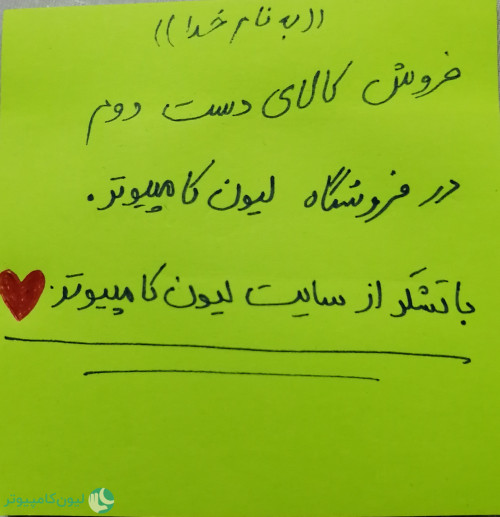 ((به نام خدا))
فروش کالای دست دوم
در فروشگاه لیون کامپیوتر.
با تشکر از سایت لیون کامپیوتر.
لیون کامپیوتر